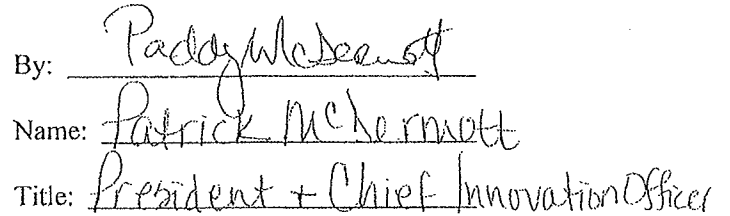 By: Paddy McDermott
Name: Patrick McDermott
Title: President + Chief Innovation Officer